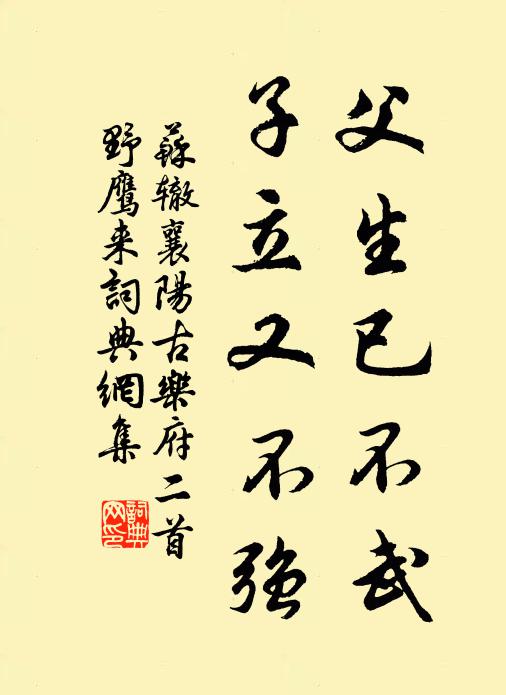 父生已不武
子立又不强
蘇辙襄陽古樂府二首
野鹰来詞典網集
詞典
网印